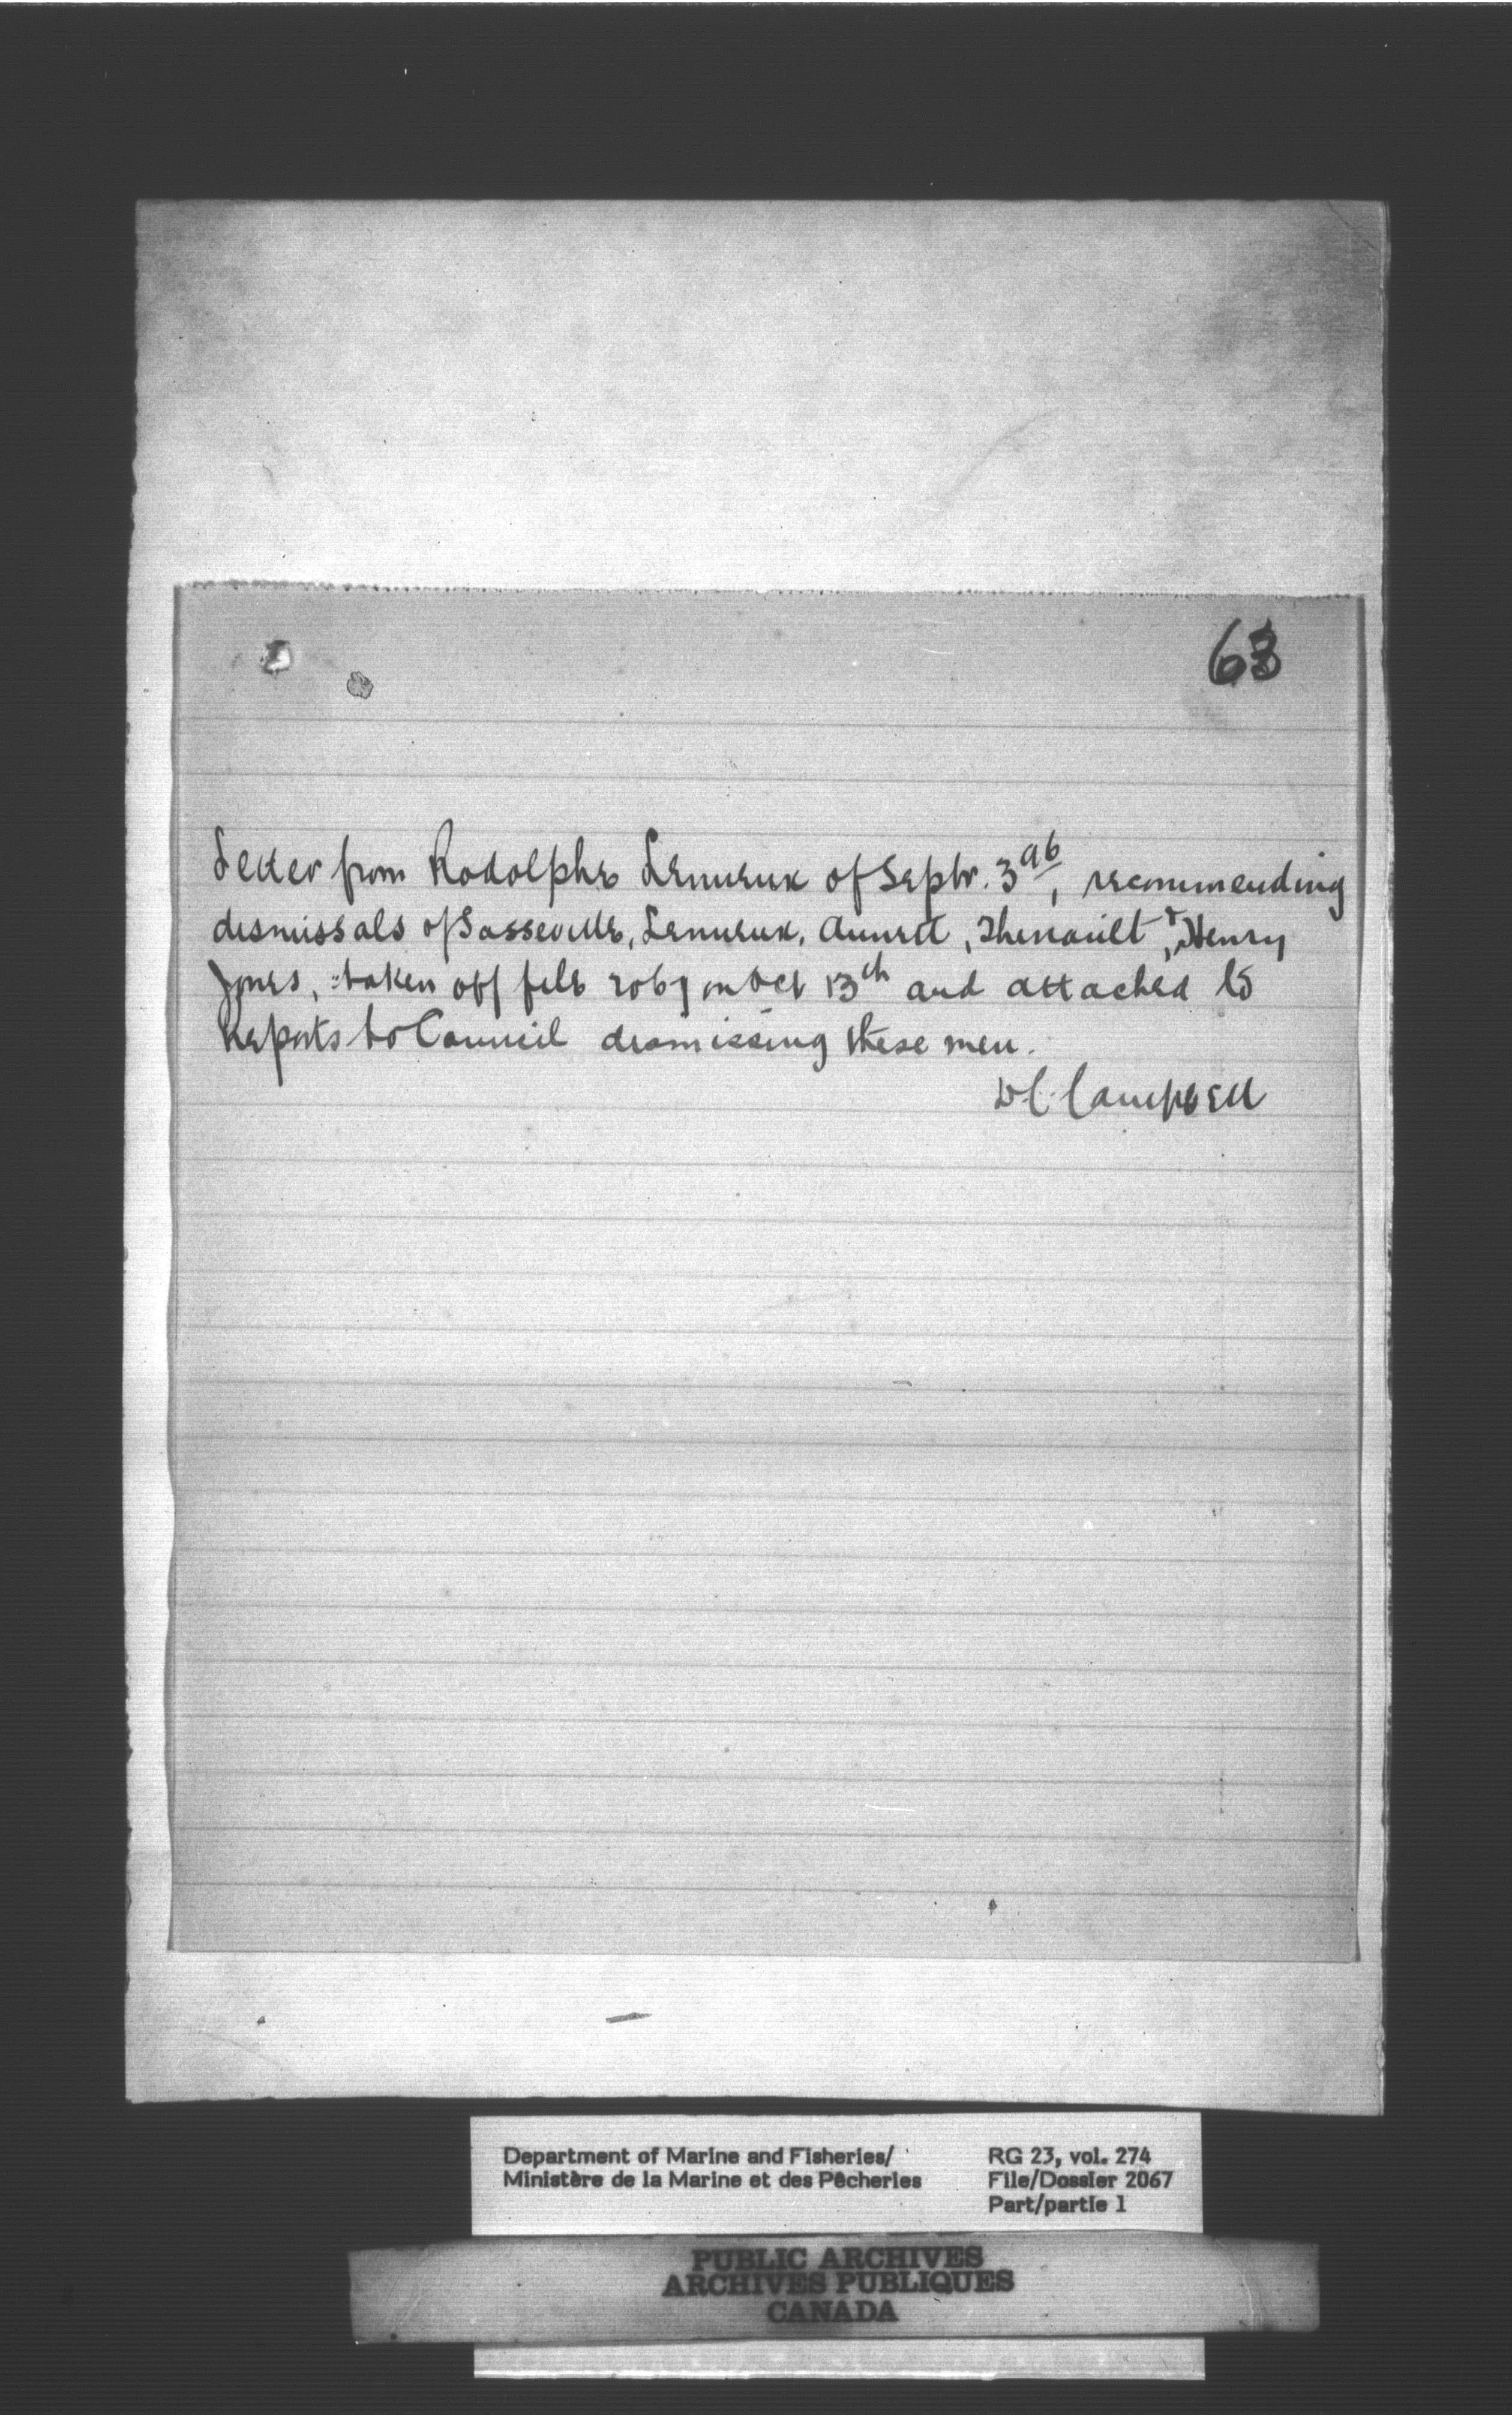 63
Letter from Rodolphe Lemieux of Septr. 3 96, recommending
dismissals of Sasseville, Lemieux, Annett, Theriault, & Henry
Jones, taken off file 2067 on Oct 13th and attached to
Reports to Council dismissing these men.
Campbell
Department of Marine and Fisheries/
Ministère de la Marine et des Pêcheries
RG 23, vol. 274
File/Dossier 2067
Part/partie 1
PUBLIC ARCHIVES
ARCHIVES PUBLIQUES
CANADA